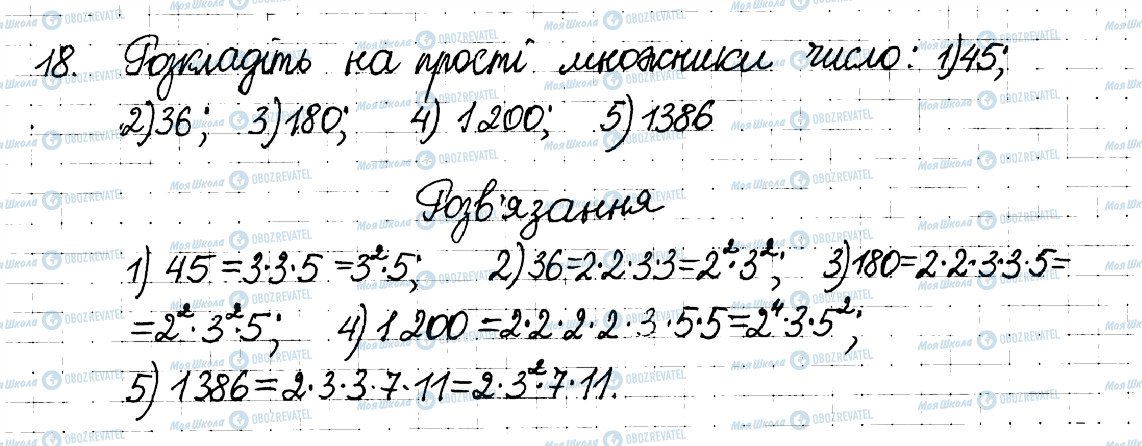 18. Розкладіть на прості множники число: 1) 45;
2) 36; 3) 180; 4) 1200; 5) 1386
Розв'язання
1) 45 = 3·3·5 = 3²·5; 2) 36 = 2·2·3·3 = 2²·3²; 3) 180 = 2·2·3·3·5 =
= 2²·3²·5; 4) 1200 = 2·2·2·2·3·5·5 = 2⁴·3·5²;
5) 1386 = 2·3·3·7·11 = 2·3²·7·11.